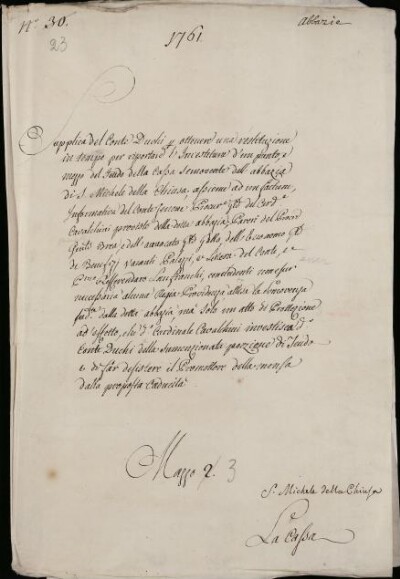 N.º 30.
23
Abbazie
1761
Supplica del Conte Duchi p ottenere una restituzione
in tempo per riportare l'Investitura d'un punto, e
mezzo del feudo della Cassa semovente dall'abbazia
di S. Michele della Chiusa, assieme ad un fattum,
Informativa del Conte Procur.
Cavalchini provvisto della detta abbazia; Pareri del
e dell'avvocato Gallo, dell'Economo
de Benefizj vacanti Palazzi, e Lettera del Conte, e
Referendaro Lanfranchi, concludenti non esser
necessaria alcuna Regia Providenza attesa la
fud.ª dalla detta abbazia, ma solo un atto di Protezione
ad effetto, che d.º Cardinale Cavalchini investisca d.º
Conte Duchi della summenzionata porzione di feudo
e di far desistere il Promottore della mensa
dalla proposta Caducità
Mazzo 2. 3
S. Michele della Chiusa
La Cassa